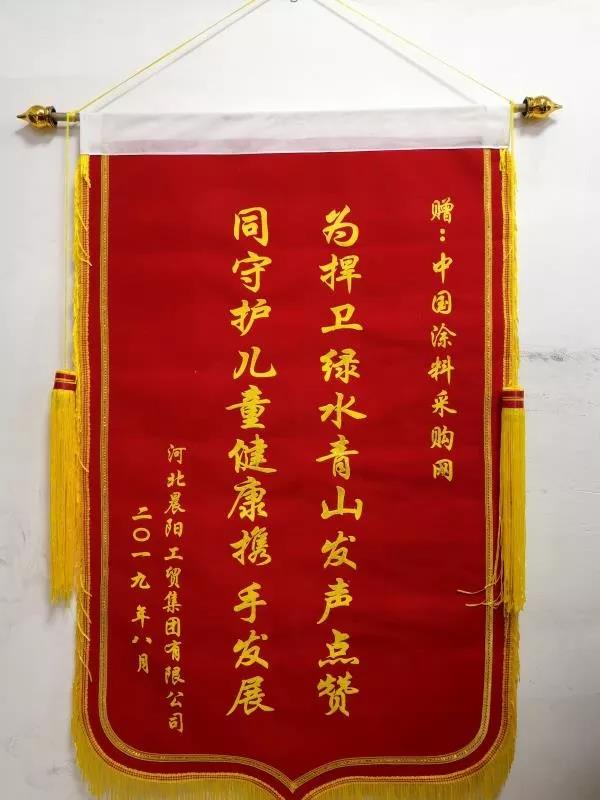 赠：中国涂料采购网
为捍卫绿水青山发声点赞
同守护儿童健康携手发展
河北晨阳工贸集团有限公司
二〇一九年八月